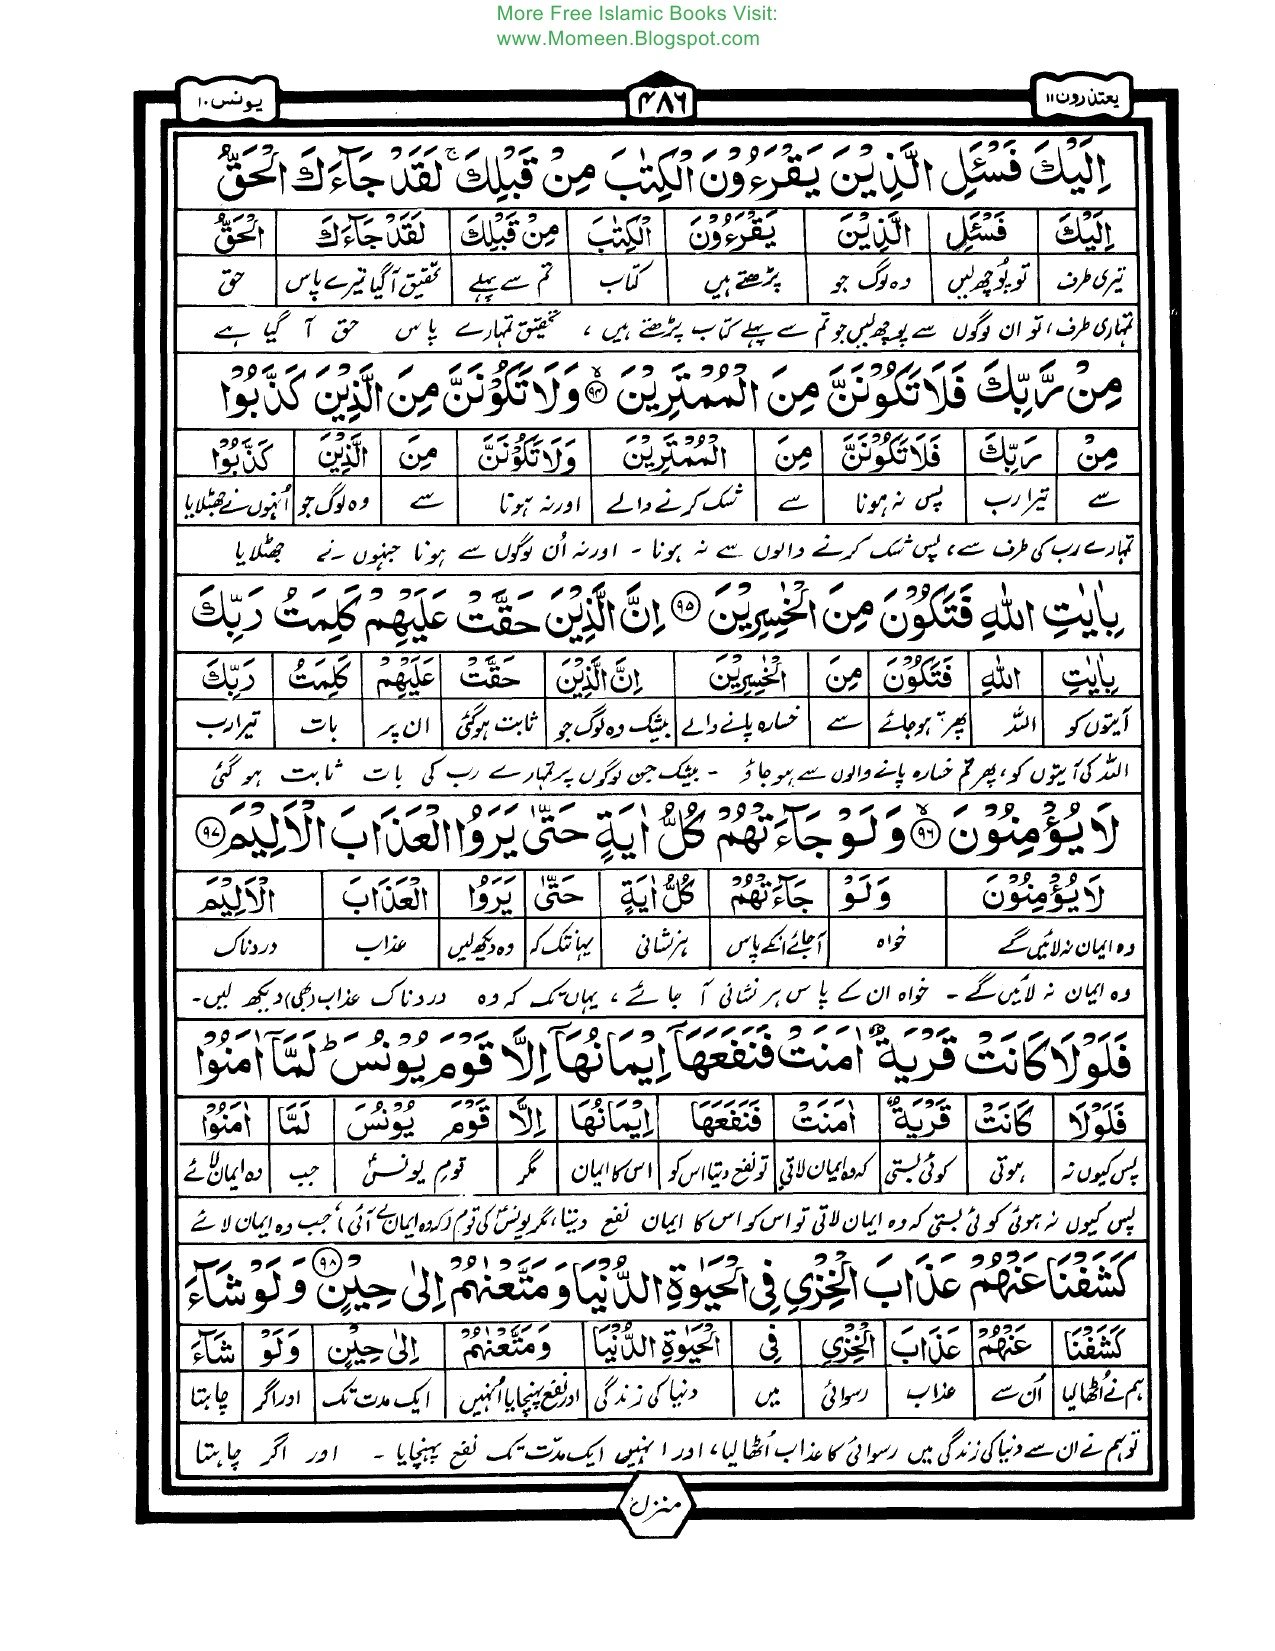 More Free Islamic Books Visit:
www.Momeen.Blogspot.com
یعتذرون ۱۱ ۴۸۶ یونس ۱۰
اِلَیْكَ فَسْـَٔلِ الَّذِیْنَ یَقْرَءُوْنَ الْكِتٰبَ مِنْ قَبْلِكَ ۚ لَقَدْ جَآءَكَ الْحَقُّ
اِلَیْكَ فَسْـَٔلِ الَّذِیْنَ یَقْرَءُوْنَ الْكِتٰبَ مِنْ قَبْلِكَ لَقَدْ جَآءَكَ الْحَقُّ
تیری طرف تو پُوچھ لیں وہ لوگ جو پڑھتے ہیں کتاب تم سے پہلے تحقیق آ گیا تیرے پاس حق
تمہاری طرف، تو ان لوگوں سے پوچھ لیں جو تم سے پہلے کتاب پڑھتے ہیں، تحقیق تمہارے پاس حق آ گیا ہے
مِنْ رَّبِّكَ فَلَا تَكُوْنَنَّ مِنَ الْمُمْتَرِیْنَ ۙ‏﴿۹۴﴾ وَلَا تَكُوْنَنَّ مِنَ الَّذِیْنَ كَذَّبُوْا
مِنْ رَبِّكَ فَلَا تَكُوْنَنَّ مِنَ الْمُمْتَرِیْنَ وَلَا تَكُوْنَنَّ مِنَ الَّذِیْنَ كَذَّبُوْا
سے تیرا رب پس نہ ہونا سے شک کرنے والے اور نہ ہونا سے وہ لوگ جو اُنہوں نے جھٹلایا
تمہارے رب کی طرف سے، پس شک کرنے والوں سے نہ ہونا ۔ اور نہ اُن لوگوں سے ہونا جنہوں نے جھٹلایا
بِاٰیٰتِ اللّٰهِ فَتَكُوْنَ مِنَ الْخٰسِرِیْنَ ﴿۹۵﴾ اِنَّ الَّذِیْنَ حَقَّتْ عَلَیْهِمْ كَلِمَتُ رَبِّكَ
بِاٰیٰتِ اللّٰهِ فَتَكُوْنَ مِنَ الْخٰسِرِیْنَ اِنَّ الَّذِیْنَ حَقَّتْ عَلَیْهِمْ كَلِمَتُ رَبِّكَ
آیتوں کو اللہ پھر ہو جائے سے خسارہ پانے والے بیشک وہ لوگ جو ثابت ہو گئی ان پر بات تیرا رب
اللہ کی آیتوں کو، پھر تم خسارہ پانے والوں سے ہو جاؤ ۔ بیشک جن لوگوں پر تمہارے رب کی بات ثابت ہو گئی
لَا یُؤْمِنُوْنَ ۙ﴿۹۶﴾ وَلَوْ جَآءَتْهُمْ كُلُّ اٰیَةٍ حَتّٰی یَرَوُا الْعَذَابَ الْاَلِیْمَ ﴿۹۷﴾
لَا یُؤْمِنُوْنَ وَلَوْ جَآءَتْهُمْ كُلُّ اٰیَةٍ حَتّٰی یَرَوُا الْعَذَابَ الْاَلِیْمَ
وہ ایمان نہ لائیں گے خواہ آجائے انکے پاس ہر نشانی یہانتک کہ وہ دیکھ لیں عذاب دردناک
وہ ایمان نہ لائیں گے ۔ خواہ ان کے پاس ہر نشانی آ جائے، یہاں تک کہ وہ دردناک عذاب (بھی) دیکھ لیں۔
فَلَوْلَا كَانَتْ قَرْیَةٌ اٰمَنَتْ فَنَفَعَهَاۤ اِیْمَانُهَاۤ اِلَّا قَوْمَ یُوْنُسَ ؕ لَمَّاۤ اٰمَنُوْا
فَلَوْلَا كَانَتْ قَرْیَةٌ اٰمَنَتْ فَنَفَعَهَا اِیْمَانُهَا اِلَّا قَوْمَ یُوْنُسَ لَمَّا اٰمَنُوْا
پس کیوں نہ ہوتی کوئی بستی کہ وہ ایمان لاتی تو نفع دیتا اس کو اس کا ایمان مگر قومِ یونسؑ جب وہ ایمان لائے
پس کیوں نہ ہوئی کوئی بستی کہ وہ ایمان لاتی تو اس کو اس کا ایمان نفع دیتا، مگر یونسؑ کی قوم (کہ وہ ایمان لے آئی) جب وہ ایمان لائے
كَشَفْنَا عَنْهُمْ عَذَابَ الْخِزْیِ فِی الْحَیٰوةِ الدُّنْیَا وَمَتَّعْنٰهُمْ اِلٰی حِیْنٍ ﴿۹۸﴾ وَلَوْ شَآءَ
كَشَفْنَا عَنْهُمْ عَذَابَ الْخِزْیِ فِی الْحَیٰوةِ الدُّنْیَا وَمَتَّعْنٰهُمْ اِلٰی حِیْنٍ وَلَوْ شَآءَ
ہم نے اُٹھا لیا اُن سے عذاب رسوائی میں دنیا کی زندگی اور نفع پہنچایا اُنہیں ایک مدت تک اور اگر چاہتا
تو ہم نے ان سے دنیا کی زندگی میں رسوائی کا عذاب اُٹھا لیا، اور انہیں ایک مدّت تک نفع پہنچایا ۔ اور اگر چاہتا